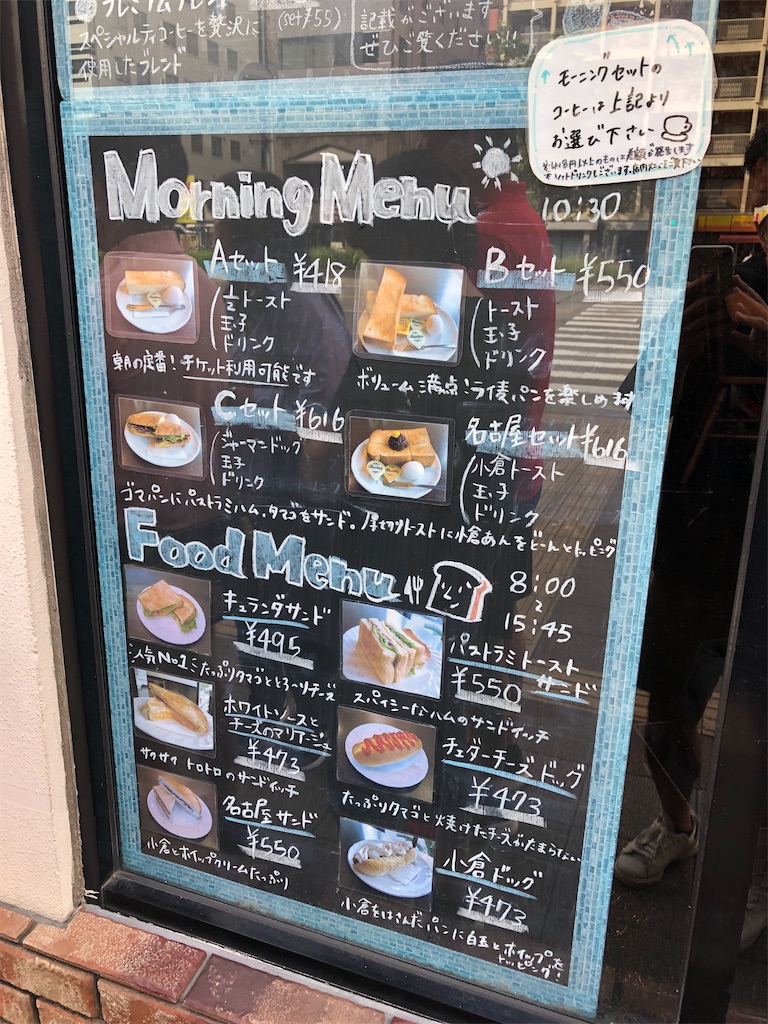 プレミアムブレンド
スペシャルティコーヒーを贅沢に
使用したブレンド
(set¥55)
記載がございます
ぜひご覧ください!!
モーニングセットの
コーヒーは上記より
お選び下さい
Morning Menu
10:30
Aセット ¥418
½トースト
玉子
ドリンク
朝の定番!チケット利用可能です
Bセット ¥550
トースト
玉子
ドリンク
ボリューム満点!ライ麦パンを楽しめます
Cセット ¥616
ジャーマンドッグ
玉子
ドリンク
ゴマパンにパストラミハム、タマゴをサンド。
名古屋セット ¥616
小倉トースト
玉子
ドリンク
厚切りトーストに小倉あんをどーんとトッピング
Food Menu
8:00
15:45
キュランダサンド
¥495
人気No1 たっぷりタマゴととろ~りチーズ
パストラミトースト
サンド
¥550
スパイシーなハムのサンドイッチ
ホワイトソースと
チーズのマリアージュ
¥473
サクサクトロトロのサンドイッチ
チェダーチーズドッグ
¥473
たっぷりタマゴと焼けたチーズがたまらない
名古屋サンド
¥550
小倉とホイップクリームたっぷり
小倉ドッグ
¥473
小倉をはさんだパンに白玉とホイップを
トッピング!